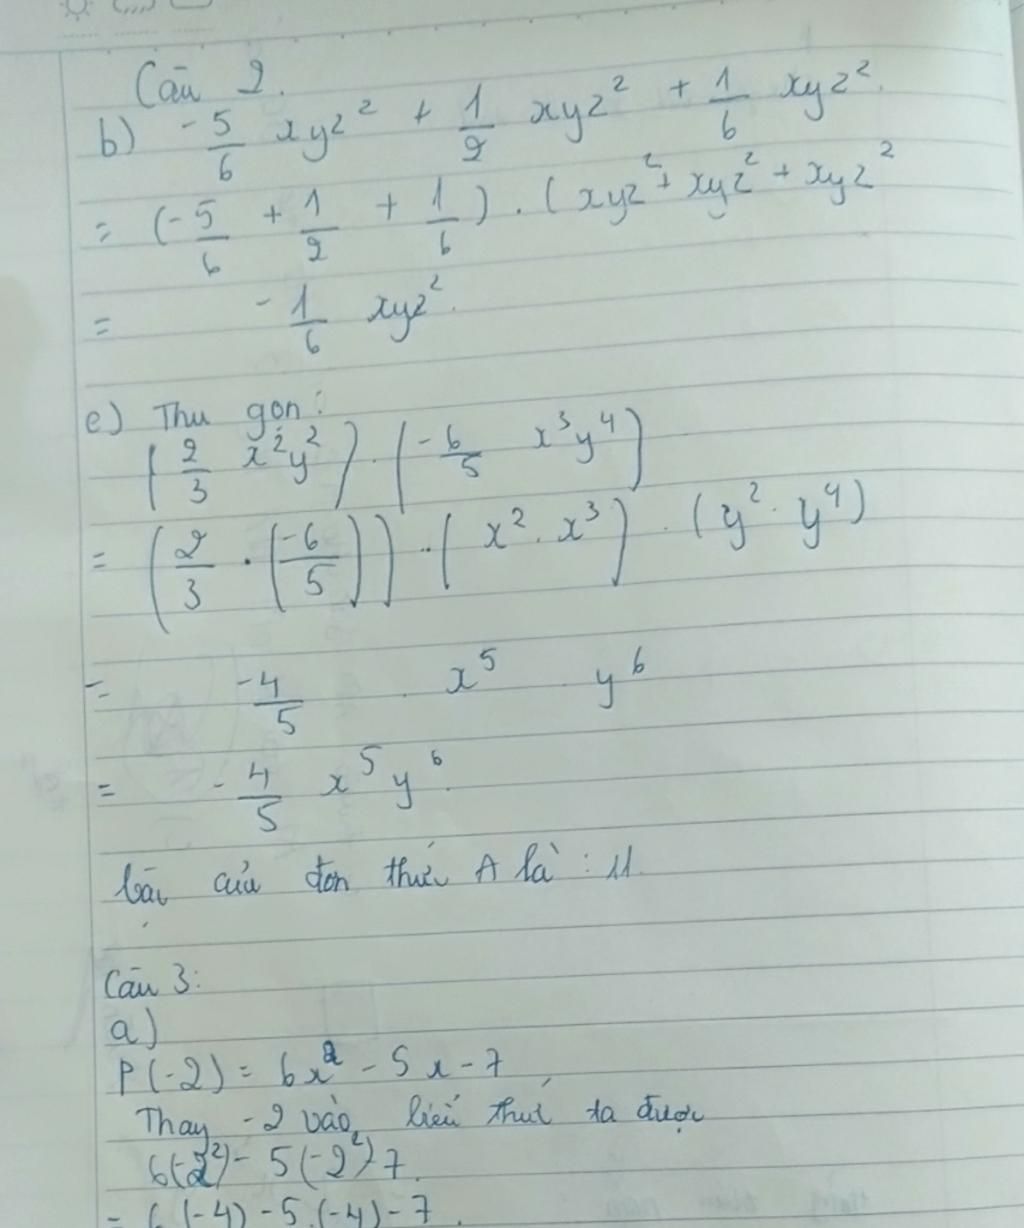 Câu 2.
b) -5/6 xyz² + 1/2 xyz² + 1/6 xyz².
= (-5/6 + 1/2 + 1/6) . (xyz² + xyz² + xyz²
= -1/6 xyz².
c) Thu gọn:
(2/3 x²y²) . (-6/5 x³y⁴)
= (2/3 . (-6/5)) . (x² . x³) . (y² . y⁴)
= -4/5 . x⁵ y⁶
= -4/5 x⁵y⁶.
bậc của đơn thức A là : 11
Câu 3:
a)
P(-2) = 6x² - 5x - 7
Thay -2 vào biểu thức ta được
6(-2²) - 5(-2²) 7.
= 6(-4) - 5.(-4) - 7.